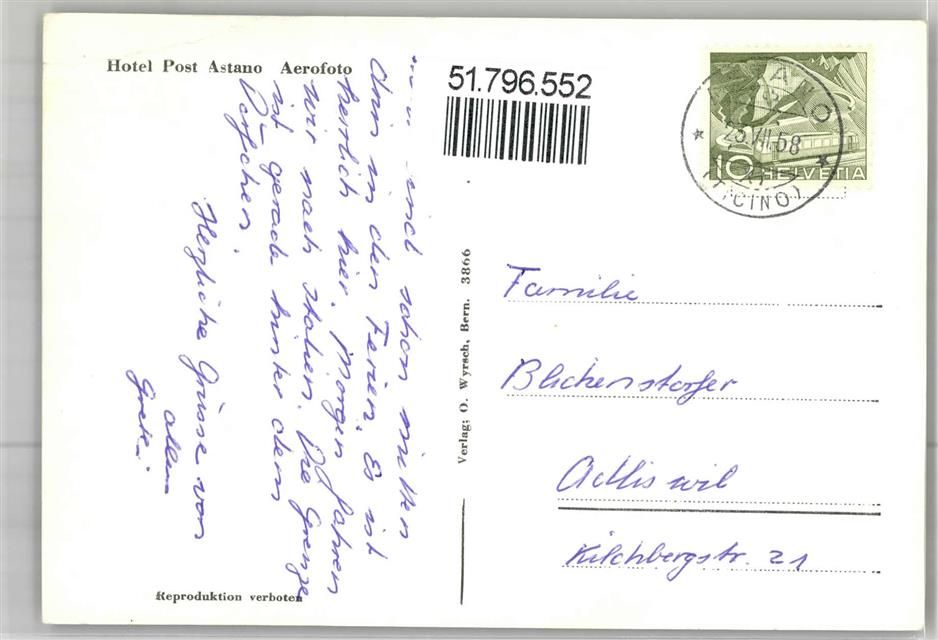 Hotel Post Astano Aerofoto
51.796.552
ANO
23.VII.58
(TICINO)
10 HELVETIA
sind schon mitten
drin in den Ferien. Es ist
herrlich hier. Morgen fahren
wir nach Italien. Die Grenze
ist gerade hinter dem
Dörfchen.
Herzliche Grüsse von
allen
Verlag: O. Wyrsch, Bern. 3866
Familie
Blickenstorfer
Adliswil
Kilchbergstr. 21
Reproduktion verboten